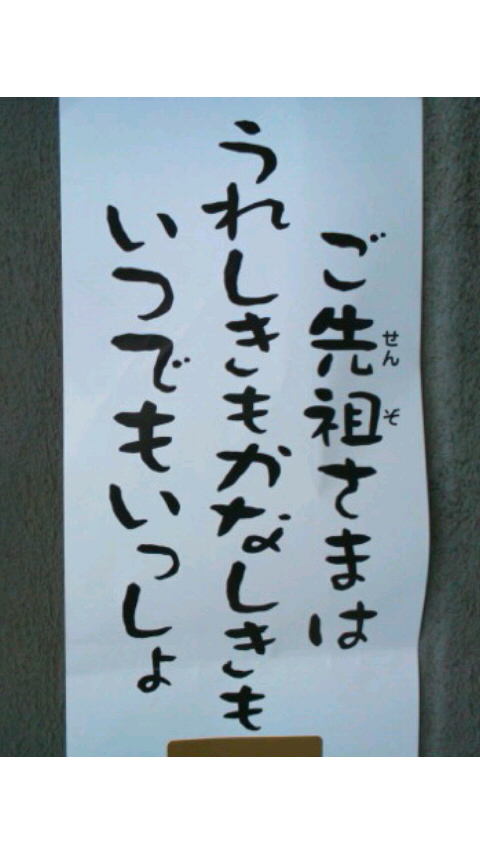 ご先祖さまは
うれしきもかなしきも
いつでもいっしょ
せん
ぞ